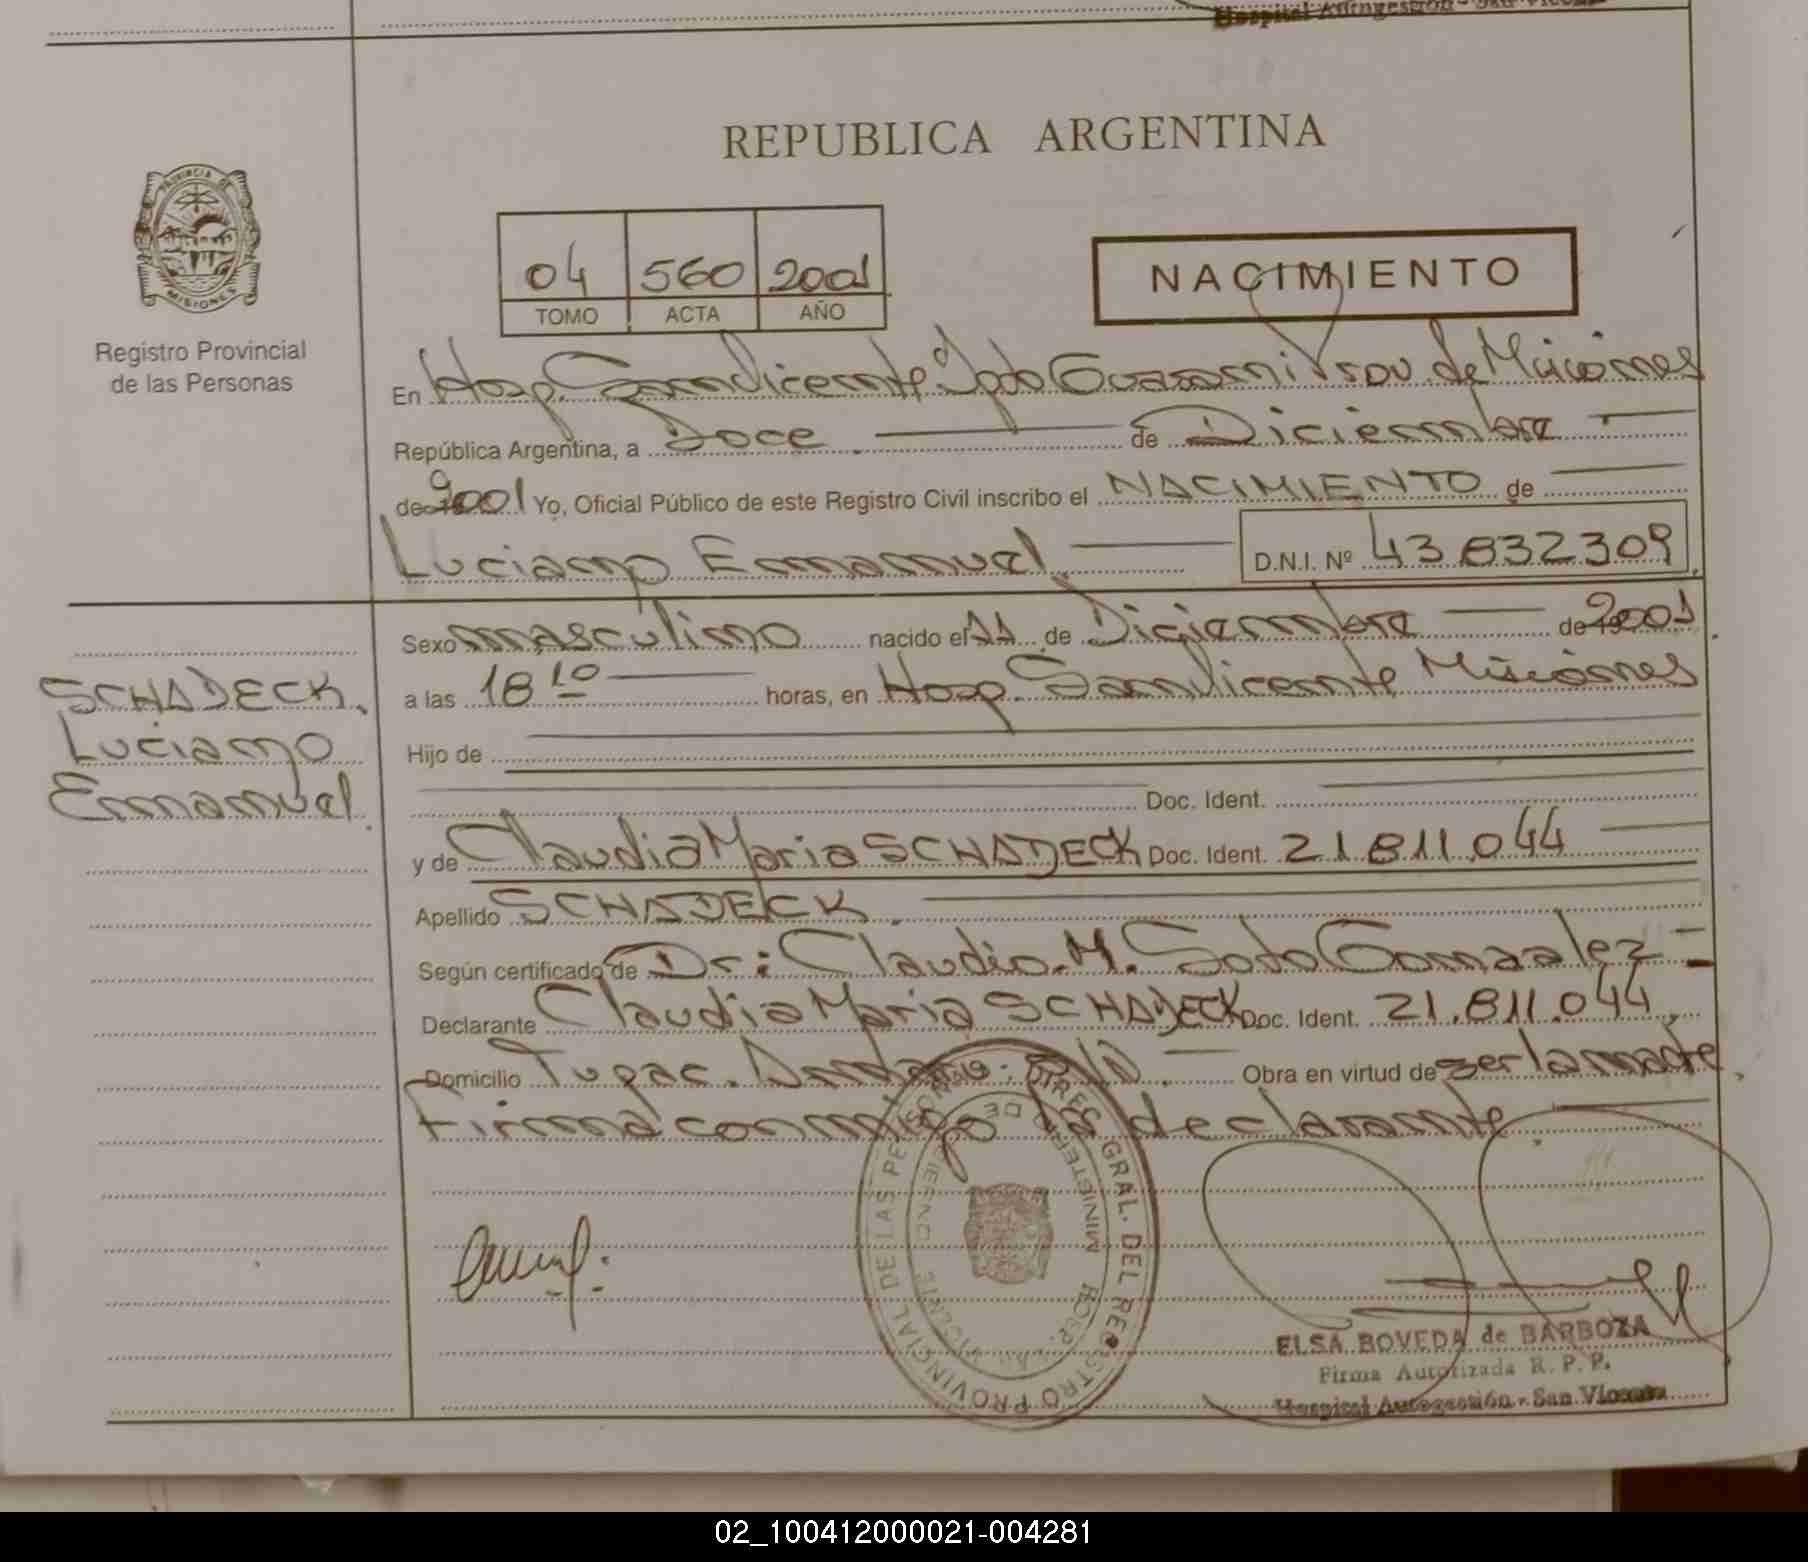 Hospital Autogestión - San Vicente
REPUBLICA ARGENTINA
PROVINCIA DE
MISIONES
Registro Provincial
de las Personas
04 560 2001
TOMO ACTA AÑO
NACIMIENTO
En Hosp. San Vicente Dpto Guarani Prov. de Misiones
República Argentina, a Doce de Diciembre
de 2001 Yo, Oficial Público de este Registro Civil inscribo el NACIMIENTO de
Luciano Emmanuel. D.N.I. Nº 43.832309
SCHADECK.
Luciano
Emmanuel.
Sexo masculino nacido el 11 de Diciembre de 2001.
a las 18 10 horas, en Hosp. San Vicente Misiones
Hijo de
Doc. Ident.
y de Claudia Maria SCHADECK Doc. Ident. 21.811.044
Apellido SCHADECK.
Según certificado de Dr: Claudio.M. Soto Gonzalez
Declarante Claudia Maria SCHADECK Doc. Ident. 21.811.044.
Domicilio Tupac. Obra en virtud de ser la madre.
Firma conmigo la declarante.
DIREC. GRAL. DEL REGISTRO PROVINCIAL DE LAS PERSONAS
MINISTERIO DE GOBIERNO
HOSP. SAN VICENTE
ELSA BOVEDA de BARBOZA
Firma Autorizada R. P. P.
Hospital Autogestión - San Vicente
02_100412000021-004281